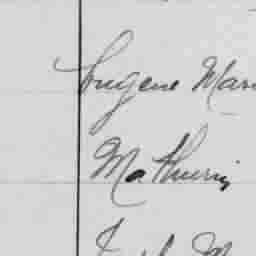 Eugene Mar
Mathurin